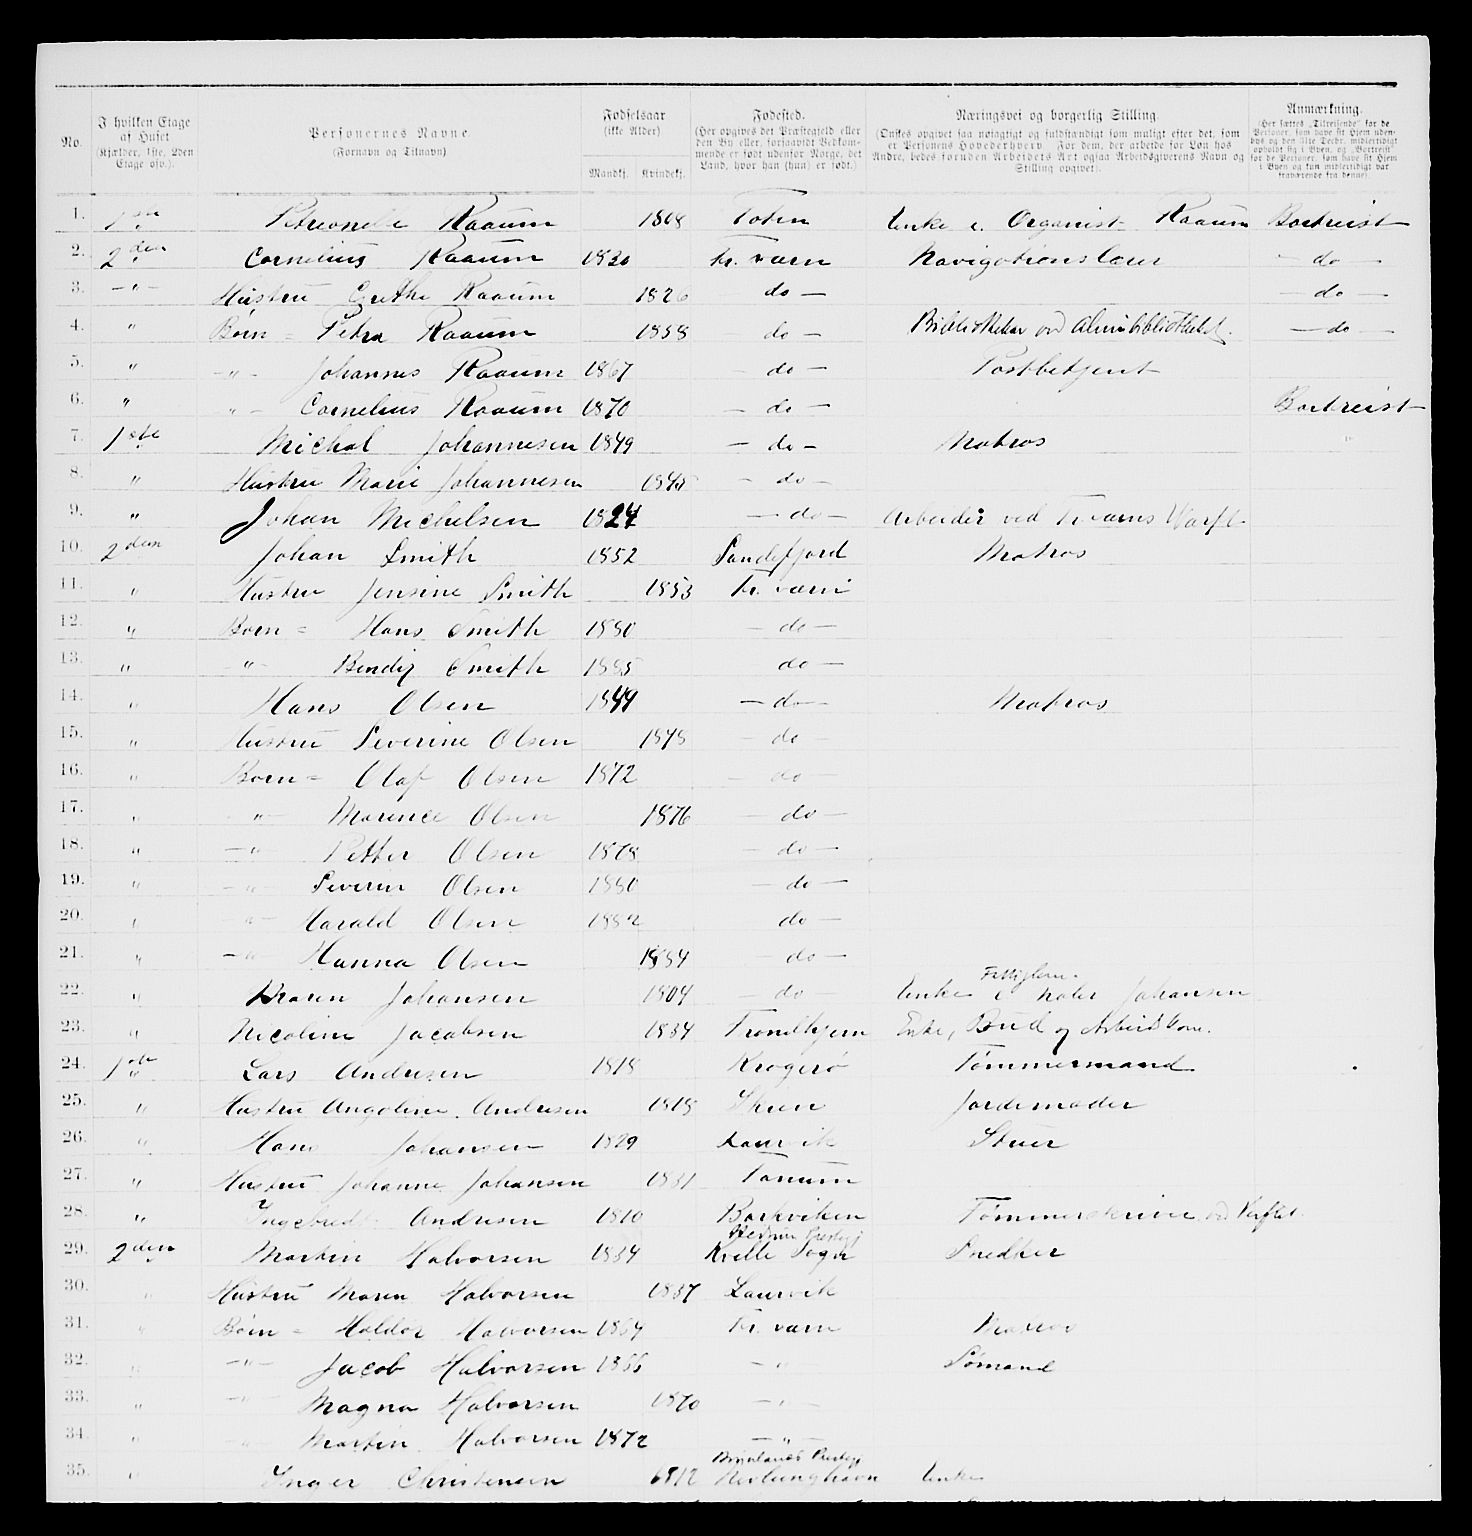 No.
I hvilken Etage af Huset (Kjælder, 1ste, 2den Etage osv.).
Personernes Navne (Fornavn og Tilnavn)
Fødselsaar (ikke Alder) Mandkj. Kvindekj.
Fødested. (Her opgives det Præstegjeld eller den By eller, forsaavidt Vedkommende er født udenfor Norge, det Land, hvor han (hun) er født.)
Næringsvei og borgerlig Stilling. (Ønskes opgivet saa nøiagtigt og fuldstændigt som muligt efter det, som er Personens Hovederhverv. For dem, der arbeide for Løn hos Andre, bedes foruden Arbeidets Art ogsaa Arbeidsgiverens Navn og Stilling opgivet).
Anmærkning.
1. 1ste Petronelle Raaum 1808 Toten Enke e. Organist Raaum Bortreist
2. 2den Cornelius Raaum 1830 Fr.værn Navigationslærer — do —
3. — " — Hustru Grethe Raaum 1826 do — — do —
4. " Børn = Petra Raaum 1858 do — Bibliothekar ved Almubibliotheket. — do —
5. " — " — Johannes Raaum 1867 — do — Postbetjent
6. " " — Cornelius Raaum 1870 — do — Bortreist
7. 1ste Michal Johannesen 1849 — do — Matros
8. " Hustru Marie Johannesen 1848 — do —
9. " Johan Michelsen 1824 — do — Arbeider ved Fr.værns Værft
10. 2den Johan Smith 1852 Sandefjord Matros
11. " Hustru Jensine Smith 1853 Fr. værn
12. " Børn = Hans Smith 1880 — do —
13. " — " — Bendix Smith 1885 do —
14. " Hans Olsen 1844 — do — Matros
15. " Hustru Severine Olsen 1848 — do —
16. " Børn = Olaf Olsen 1872 — do —
17. " — " — Marence Olsen 1876 — do —
18. " — " Petter Olsen 1878 — do —
19. " — " — Severin Olsen 1880 — do —
20. " — " — Harald Olsen 1882 do —
21. " — " Hanna Olsen 1884 — do —
22. " Maren Johansen 1804 — do — Fattiglem. Enke e Maler Johansen
23. " Nicoline Jacobsen 1834 Trondhjem Enke, Bud og Arbeidskone.
24. 1ste Lars Andresen 1818 Kragerø Tømmermand
25. " Hustru Angoline Andresen 1818 Skien Jordemoder
26. " Hans Johansen 1829 Laurvik Stuer
27. " Hustru Johanne Johansen 1831 Tanum
28. " Ingebredt Andresen 1810 Barkviken Tømmerskriver ved Værftet.
29. 2den Martin Halvorsen 1834 Hedrum Prestegj Kvelle Sogn Snedker
30. " Hustru Maren Halvorsen 1837 Laurvik
31. " Børn = Haldor Halvorsen 1864 Fr. værn Matros
32. " — " — Jacob Halvorsen 1866 — " Sømand
33. " — " — Magna Halvorsen 1870 — " —
34. " — " — Martin Halvorsen 1872 — " —
35. " Inger Christensen 1812 Brunlanes Prestegj Nevlunghavn Enke